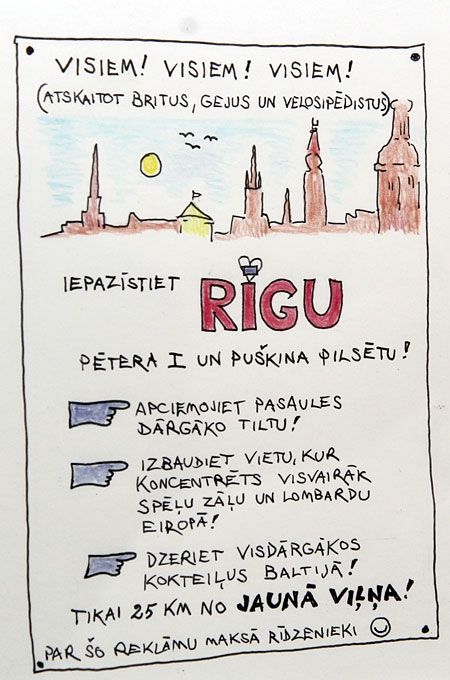 VISIEM! VISIEM! VISIEM!
(ATSKAITOT BRITUS, GEJUS UN VELOSIPĒDISTUS)
IEPAZĪSTIET RĪGU
PĒTERA I UN PUŠKINA PILSĒTU!
APCIEMOJIET PASAULES
DĀRGĀKO TILTU!
IZBAUDIET VIETU, KUR
KONCENTRĒTS VISVAIRĀK
SPĒĻU ZĀĻU UN LOMBARDU
EIROPĀ!
DZERIET VISDĀRGĀKOS
KOKTEIĻUS BALTIJĀ!
TIKAI 25 KM NO JAUNĀ VIĻŅA!
PAR ŠO REKLĀMU MAKSĀ RĪDZENIEKI